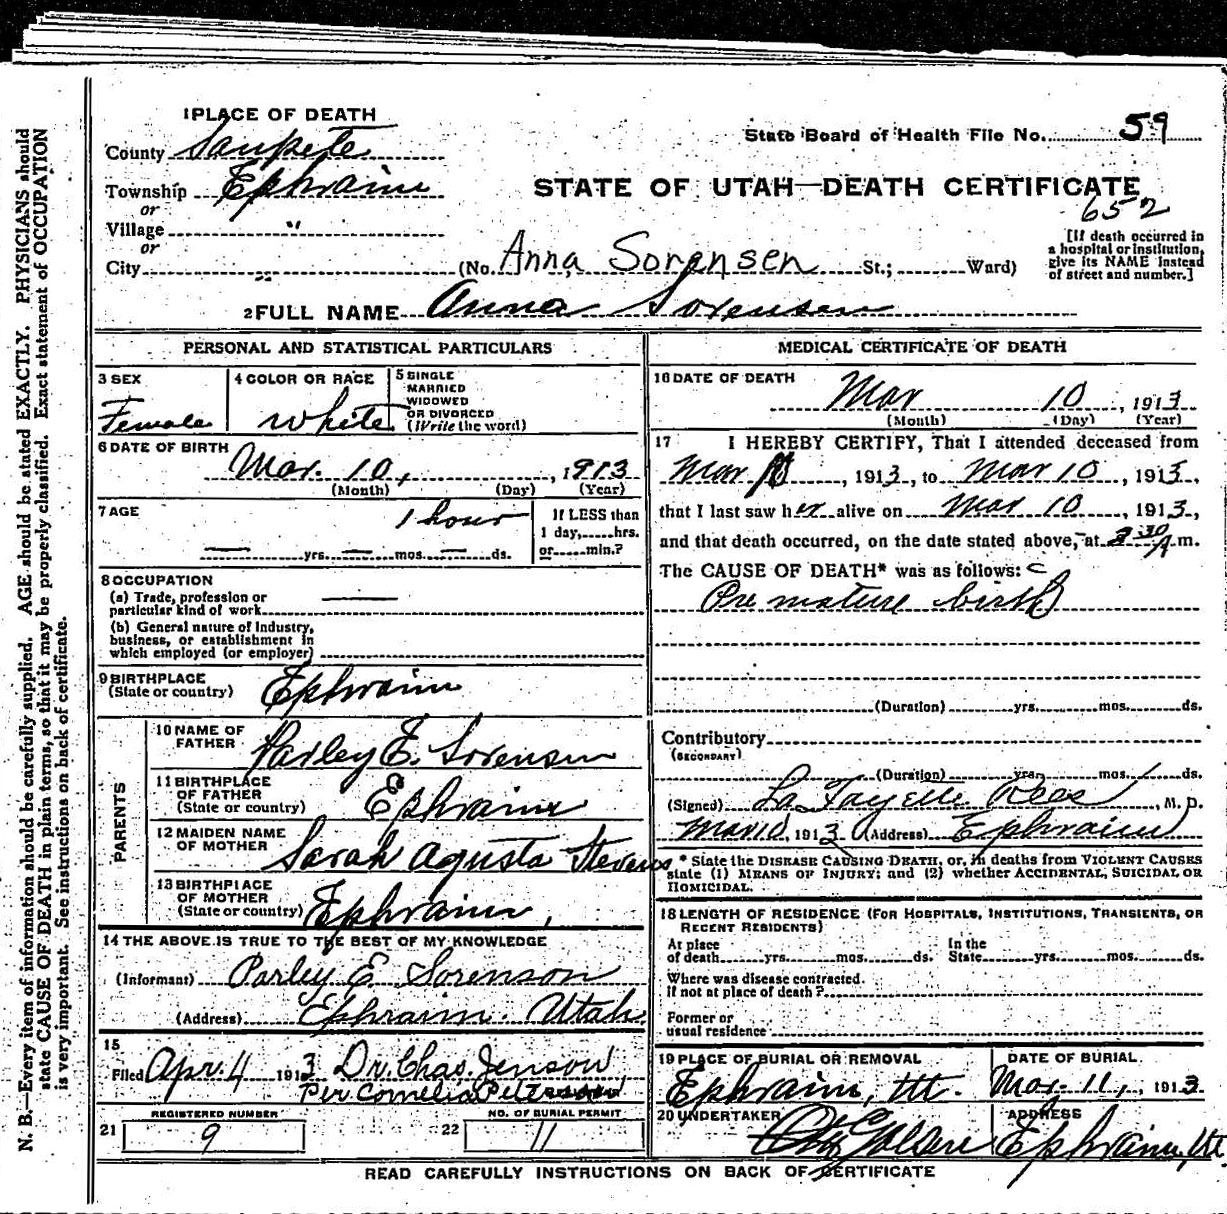 1 PLACE OF DEATH
County Sanpete
State Board of Health File No. 59
Township Ephraim
STATE OF UTAH—DEATH CERTIFICATE
652
or
Village "
or
City "
(No. Anna Sorensen St.; Ward)
[If death occurred in a hospital or institution, give its NAME instead of street and number.]
2 FULL NAME Anna Sorensen
PERSONAL AND STATISTICAL PARTICULARS
3 SEX
Female
4 COLOR OR RACE
White
5 SINGLE
MARRIED
WIDOWED
OR DIVORCED
(Write the word)
6 DATE OF BIRTH
Mar. 10, , 1913
(Month) (Day) (Year)
7 AGE
1 hour
— yrs. — mos. — ds.
If LESS than
1 day, hrs.
or min.?
8 OCCUPATION
(a) Trade, profession or
particular kind of work —
(b) General nature of industry,
business, or establishment in
which employed (or employer)
9 BIRTHPLACE
(State or country) Ephraim
PARENTS
10 NAME OF
FATHER Parley E. Sorensen
11 BIRTHPLACE
OF FATHER
(State or country) Ephraim
12 MAIDEN NAME
OF MOTHER Sarah Agusta Stevens
13 BIRTHPLACE
OF MOTHER
(State or country) Ephraim,
14 THE ABOVE IS TRUE TO THE BEST OF MY KNOWLEDGE
(Informant) Parley E. Sorenson
(Address) Ephraim. Utah
15
Filed Apr. 4 1913 Dr. Chas. Jenson
Per Cornelia Peterson
REGISTERED NUMBER
21 9
NO. OF BURIAL PERMIT
22 11
MEDICAL CERTIFICATE OF DEATH
16 DATE OF DEATH
Mar 10 , 1913
(Month) (Day) (Year)
17 I HEREBY CERTIFY, That I attended deceased from
Mar 10 , 1913, to Mar 10 , 1913,
that I last saw her alive on Mar 10 , 1913,
and that death occurred, on the date stated above, at 30 A.m.
The CAUSE OF DEATH* was as follows:
Premature birth
(Duration) yrs. mos. ds.
Contributory
(SECONDARY)
(Duration) yrs. mos. ds.
(Signed) La Fayette Rees , M. D.
Mar 10, 1913 (Address) Ephraim
* State the DISEASE CAUSING DEATH, or, in deaths from VIOLENT CAUSES
state (1) MEANS OF INJURY; and (2) whether ACCIDENTAL, SUICIDAL OR
HOMICIDAL.
18 LENGTH OF RESIDENCE (FOR HOSPITALS, INSTITUTIONS, TRANSIENTS, OR
RECENT RESIDENTS)
At place
of death yrs. mos. ds.
In the
State yrs. mos. ds.
Where was disease contracted.
If not at place of death?
Former or
usual residence
19 PLACE OF BURIAL OR REMOVAL
Ephraim, Ut.
DATE OF BURIAL
Mar. 11, , 1913
20 UNDERTAKER
ADDRESS
Ephraim, Ut.
READ CAREFULLY INSTRUCTIONS ON BACK OF CERTIFICATE
N. B.—Every item of information should be carefully supplied. AGE should be stated EXACTLY. PHYSICIANS should
state CAUSE OF DEATH in plain terms, so that it may be properly classified. Exact statement of OCCUPATION
is very important. See instructions on back of certificate.